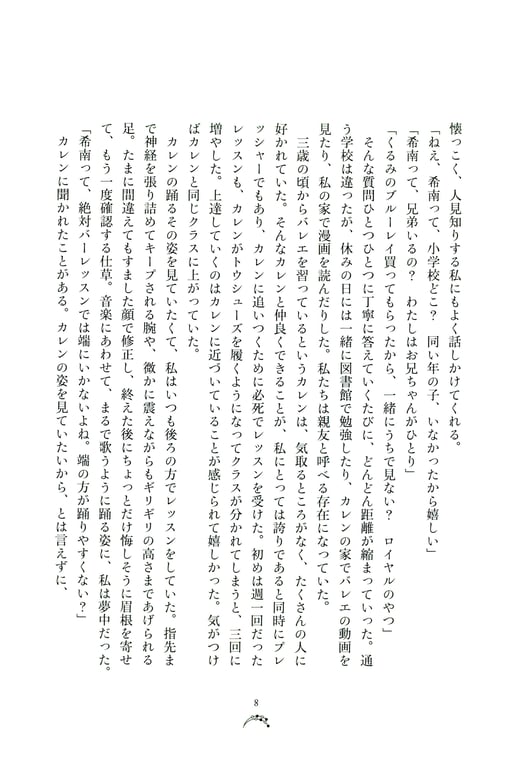 懐っこく、人見知りする私にもよく話しかけてくれる。
「ねえ、希南って、小学校どこ？　同い年の子、いなかったから嬉しい」
「希南って、兄弟いるの？　わたしはお兄ちゃんがひとり」
「くるみのブルーレイ買ってもらったから、一緒にうちで見ない？　ロイヤルのやつ」
そんな質問ひとつひとつに丁寧に答えていくたびに、どんどん距離が縮まっていった。通
う学校は違ったが、休みの日には一緒に図書館で勉強したり、カレンの家でバレエの動画を
見たり、私の家で漫画を読んだりした。私たちは親友と呼べる存在になっていた。
三歳の頃からバレエを習っているというカレンは、気取るところがなく、たくさんの人に
好かれていた。そんなカレンと仲良くできることが、私にとっては誇りであると同時にプレ
ッシャーでもあり、カレンに追いつくために必死でレッスンを受けた。初めは週一回だった
レッスンも、カレンがトウシューズを履くようになってクラスが分かれてしまうと、三回に
増やした。上達していくのはカレンに近づいていることが感じられて嬉しかった。気がつけ
ばカレンと同じクラスに上がっていた。
カレンの踊るその姿を見ていたくて、私はいつも後ろの方でレッスンをしていた。指先ま
で神経を張り詰めてキープされる腕や、微かに震えながらもギリギリの高さまであげられる
足。たまに間違えてもすました顔で修正し、終えた後にちょっとだけ悔しそうに眉根を寄せ
て、もう一度確認する仕草。音楽にあわせて、まるで歌うように踊る姿に、私は夢中だった。
「希南って、絶対バーレッスンでは端にいかないよね。端の方が踊りやすくない？」
カレンに聞かれたことがある。カレンの姿を見ていたいから、とは言えずに、
8